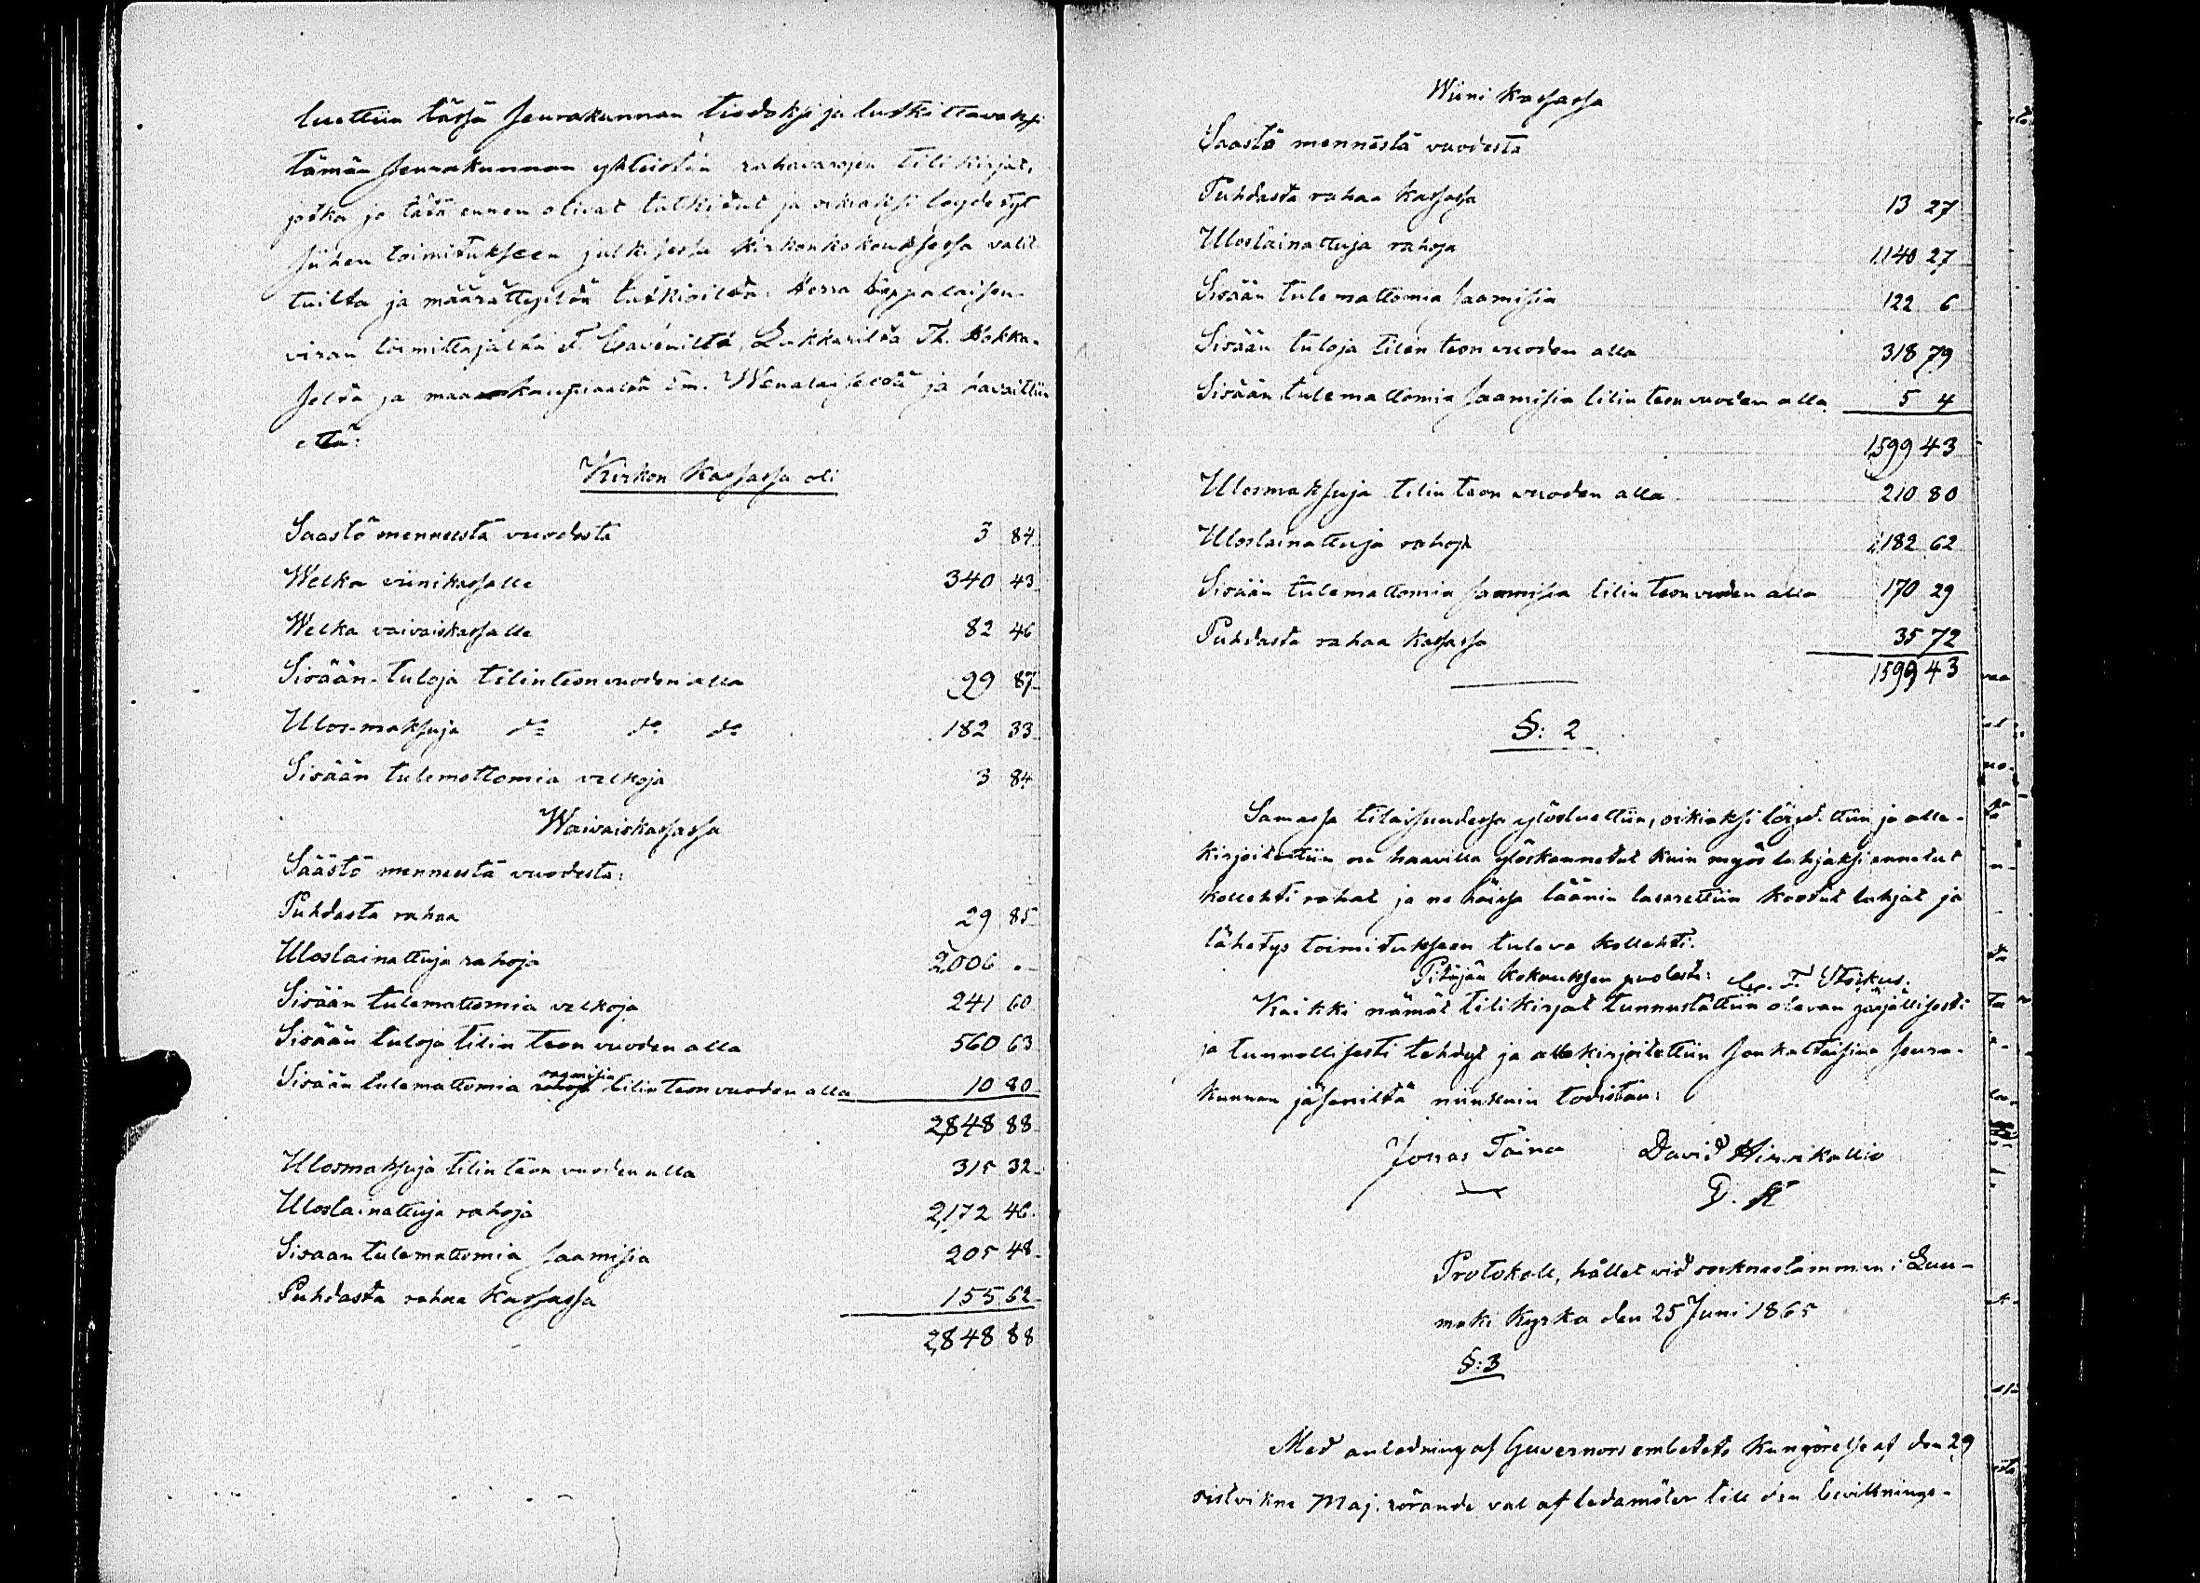 luettiin tässä seurakunnan tiedoksi ja tutkittavaksi
tämän seurakunnan yhteisten rahavarojen tilikirjat,
jotka jo tätä ennen olivat tutkitut ja oikiaksi löydetyt
siihen toimitukseen julkisessa kirkonkokouksessa valit-
tuilta ja määrättyiltä tutkioilta: Herra kappalaisen-
viran toimittajalta F. Lukkarilta Th. Hokka-
selta ja maankauppiaalta Sm. Wenalaiselta ja havaittiin
että:
Kirkon Kassassa oli
Saastö menneestä vuodesta 3 84
Welka viinikassalle 340 43
Welka vaivaiskassalle 82 46
Sisään-tuloja tilinteon vuoden alla 99 87
Ulos-maksuja do do do 182 33
Sisään tulemattomia velkoja 3 84
Waivaiskassassa
Säästö menneestä vuodesta:
Puhdasta rahaa 29 85
Uloslainattuja rahoja 2,006 -
Sisään tulemattomia velkoja 241 60
Sisään tuloja tilin teon vuoden alla 560 63
Sisään tulemattomia saamisia tilin teon vuoden alla 10 80
2,848 88
Ulosmaksuja tilin teon vuoden alla 315 32
Uloslainattuja rahoja 2,172 46
Sisaan tulemattomia saamisia 205 48
Puhdasta rahaa Kassassa 155 62
2,848 88
Wiini Kassassa
Saastö mennestä vuodesta
Puhdasta rahaa Kassassa 13 27
Uloslainattuja rahoja 1,140 27
Sisään tulemattomia saamisia 122 6
Sisään tuloja tilin teon vuoden alla 318 79
Sisään tulemattomia saamisia tilin teon vuoden alla 5 4
1,599 43
Ulosmaksuja tilin teon vuoden alla 210 80
Uloslainattuja rahoja 1,182 62
Sisään tulemattomia saamisia tilin teon vuoden alla 170 29
Puhdasta rahaa Kassassa 35 72
1599 43
§: 2
Samassa tilaisuudessa ylösluettiin, oikiaksi löydettiin ja alle-
kirjoitettiin se haavilla ylöskannetut kuin myös lahjaksi annetut
kollehti rahat ja ne häissä läänin lasarettiin kootut lahjat ja
lähetys toimitukseen tuleva kollehti.
Pitäjän kokouksen puolesta: C. F. Utrikus.
Kaikki nämät tilikirjat tunnustettiin olevan järjällisesti
ja tunnollisesti tehdyt ja allekirjoitettiin seura-
kunnan jäseniltä niinkuin todistan:
Jonas Taina David Hirvikallio
D. H
Protokoll, hållet vid socknestämman i Luu-
mäki Kyrka den 25 Juni 1865
§: 3
Med anledning af Guvernörs embetets Kungörelse af den 29
sistvikne Maj. rörande val af ledamöter till den bevillnings-